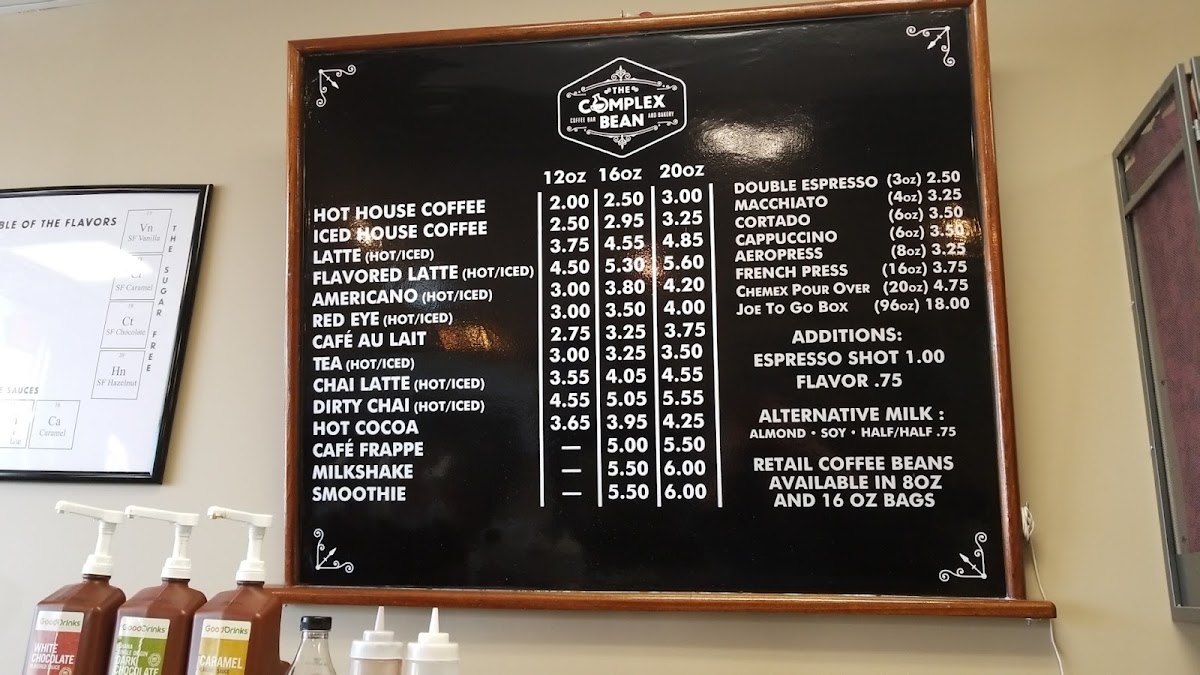 THE
COMPLEX
COFFEE BAR BEAN AND BAKERY
12oz 16oz 20oz
HOT HOUSE COFFEE 2.00 2.50 3.00
ICED HOUSE COFFEE 2.50 2.95 3.25
LATTE (HOT/ICED) 3.75 4.55 4.85
FLAVORED LATTE (HOT/ICED) 4.50 5.30 5.60
AMERICANO (HOT/ICED) 3.00 3.80 4.20
RED EYE (HOT/ICED) 3.00 3.50 4.00
CAFÉ AU LAIT 2.75 3.25 3.75
TEA (HOT/ICED) 3.00 3.25 3.50
CHAI LATTE (HOT/ICED) 3.55 4.05 4.55
DIRTY CHAI (HOT/ICED) 4.55 5.05 5.55
HOT COCOA 3.65 3.95 4.25
CAFÉ FRAPPE — 5.00 5.50
MILKSHAKE — 5.50 6.00
SMOOTHIE — 5.50 6.00
DOUBLE ESPRESSO (3oz) 2.50
MACCHIATO (4oz) 3.25
CORTADO (6oz) 3.50
CAPPUCCINO (6oz) 3.50
AEROPRESS (8oz) 3.25
FRENCH PRESS (16oz) 3.75
CHEMEX POUR OVER (20oz) 4.75
JOE TO GO BOX (96oz) 18.00
ADDITIONS:
ESPRESSO SHOT 1.00
FLAVOR .75
ALTERNATIVE MILK :
ALMOND • SOY • HALF/HALF .75
RETAIL COFFEE BEANS
AVAILABLE IN 8OZ
AND 16 OZ BAGS
OF THE FLAVORS
Vn
SF Vanilla
SF Caramel
Ct
SF Chocolate
Hn
SF Hazelnut
THE SUGAR FREE
SAUCES
Ca
Caramel
GoodDrinks
WHITE
CHOCOLATE
GoodDrinks
DARK
CHOCOLATE
GoodDrinks
CARAMEL